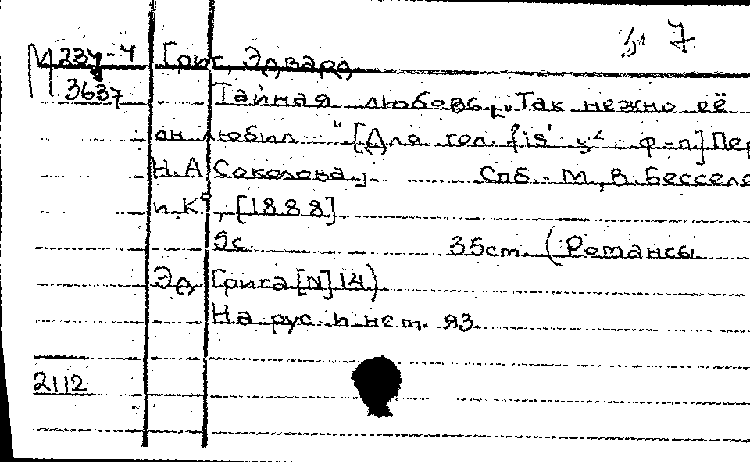 7
М 234-4 Григ, Эдвард
3637 Тайная любовь. "Так нежно её
он любил" [Для гол. fis' ф-п] Пер
Н.А Соколова. Спб.-М., В. Бессель
и Кº, [1888]
5с 35см. (Романсы
Эд Грига [N] 14)
На рус и нем. яз.
2112